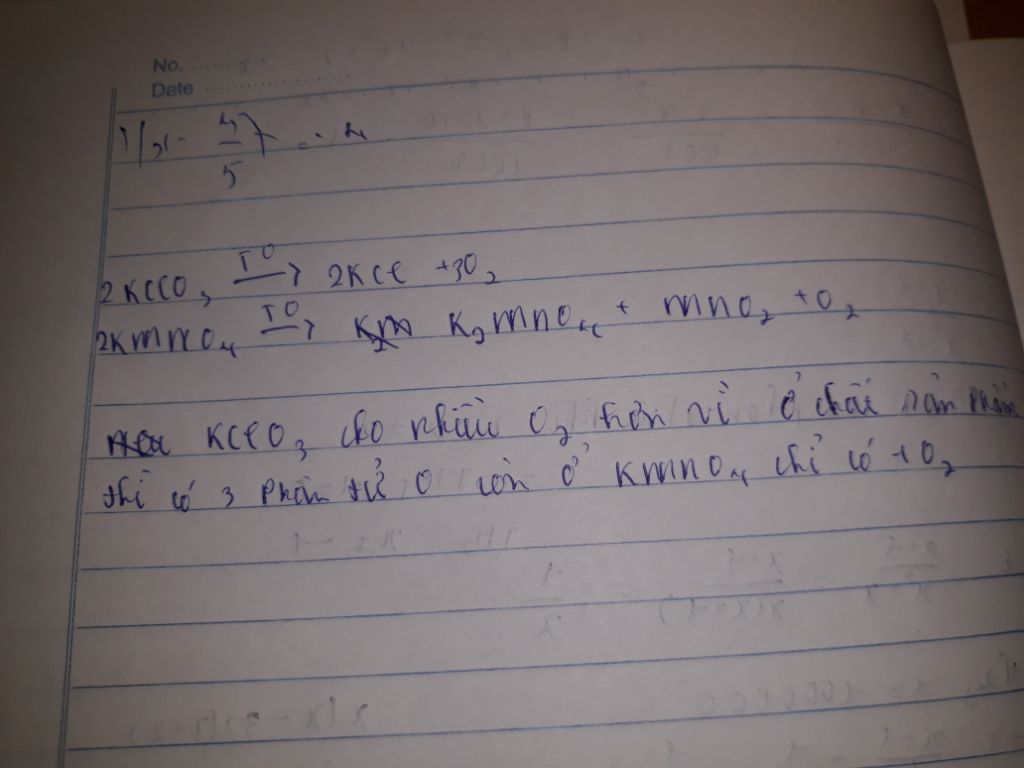 No.
Date
5
2KClO3 T0→ 2KCl +3O2
2KMnO4 T0→ K2MnO4 + MnO2 +O2
KClO3 cho nhiều O2 hơn vì ở chất sản phẩm
thì có 3 phân tử O còn ở KMnO4 chỉ có 1O2